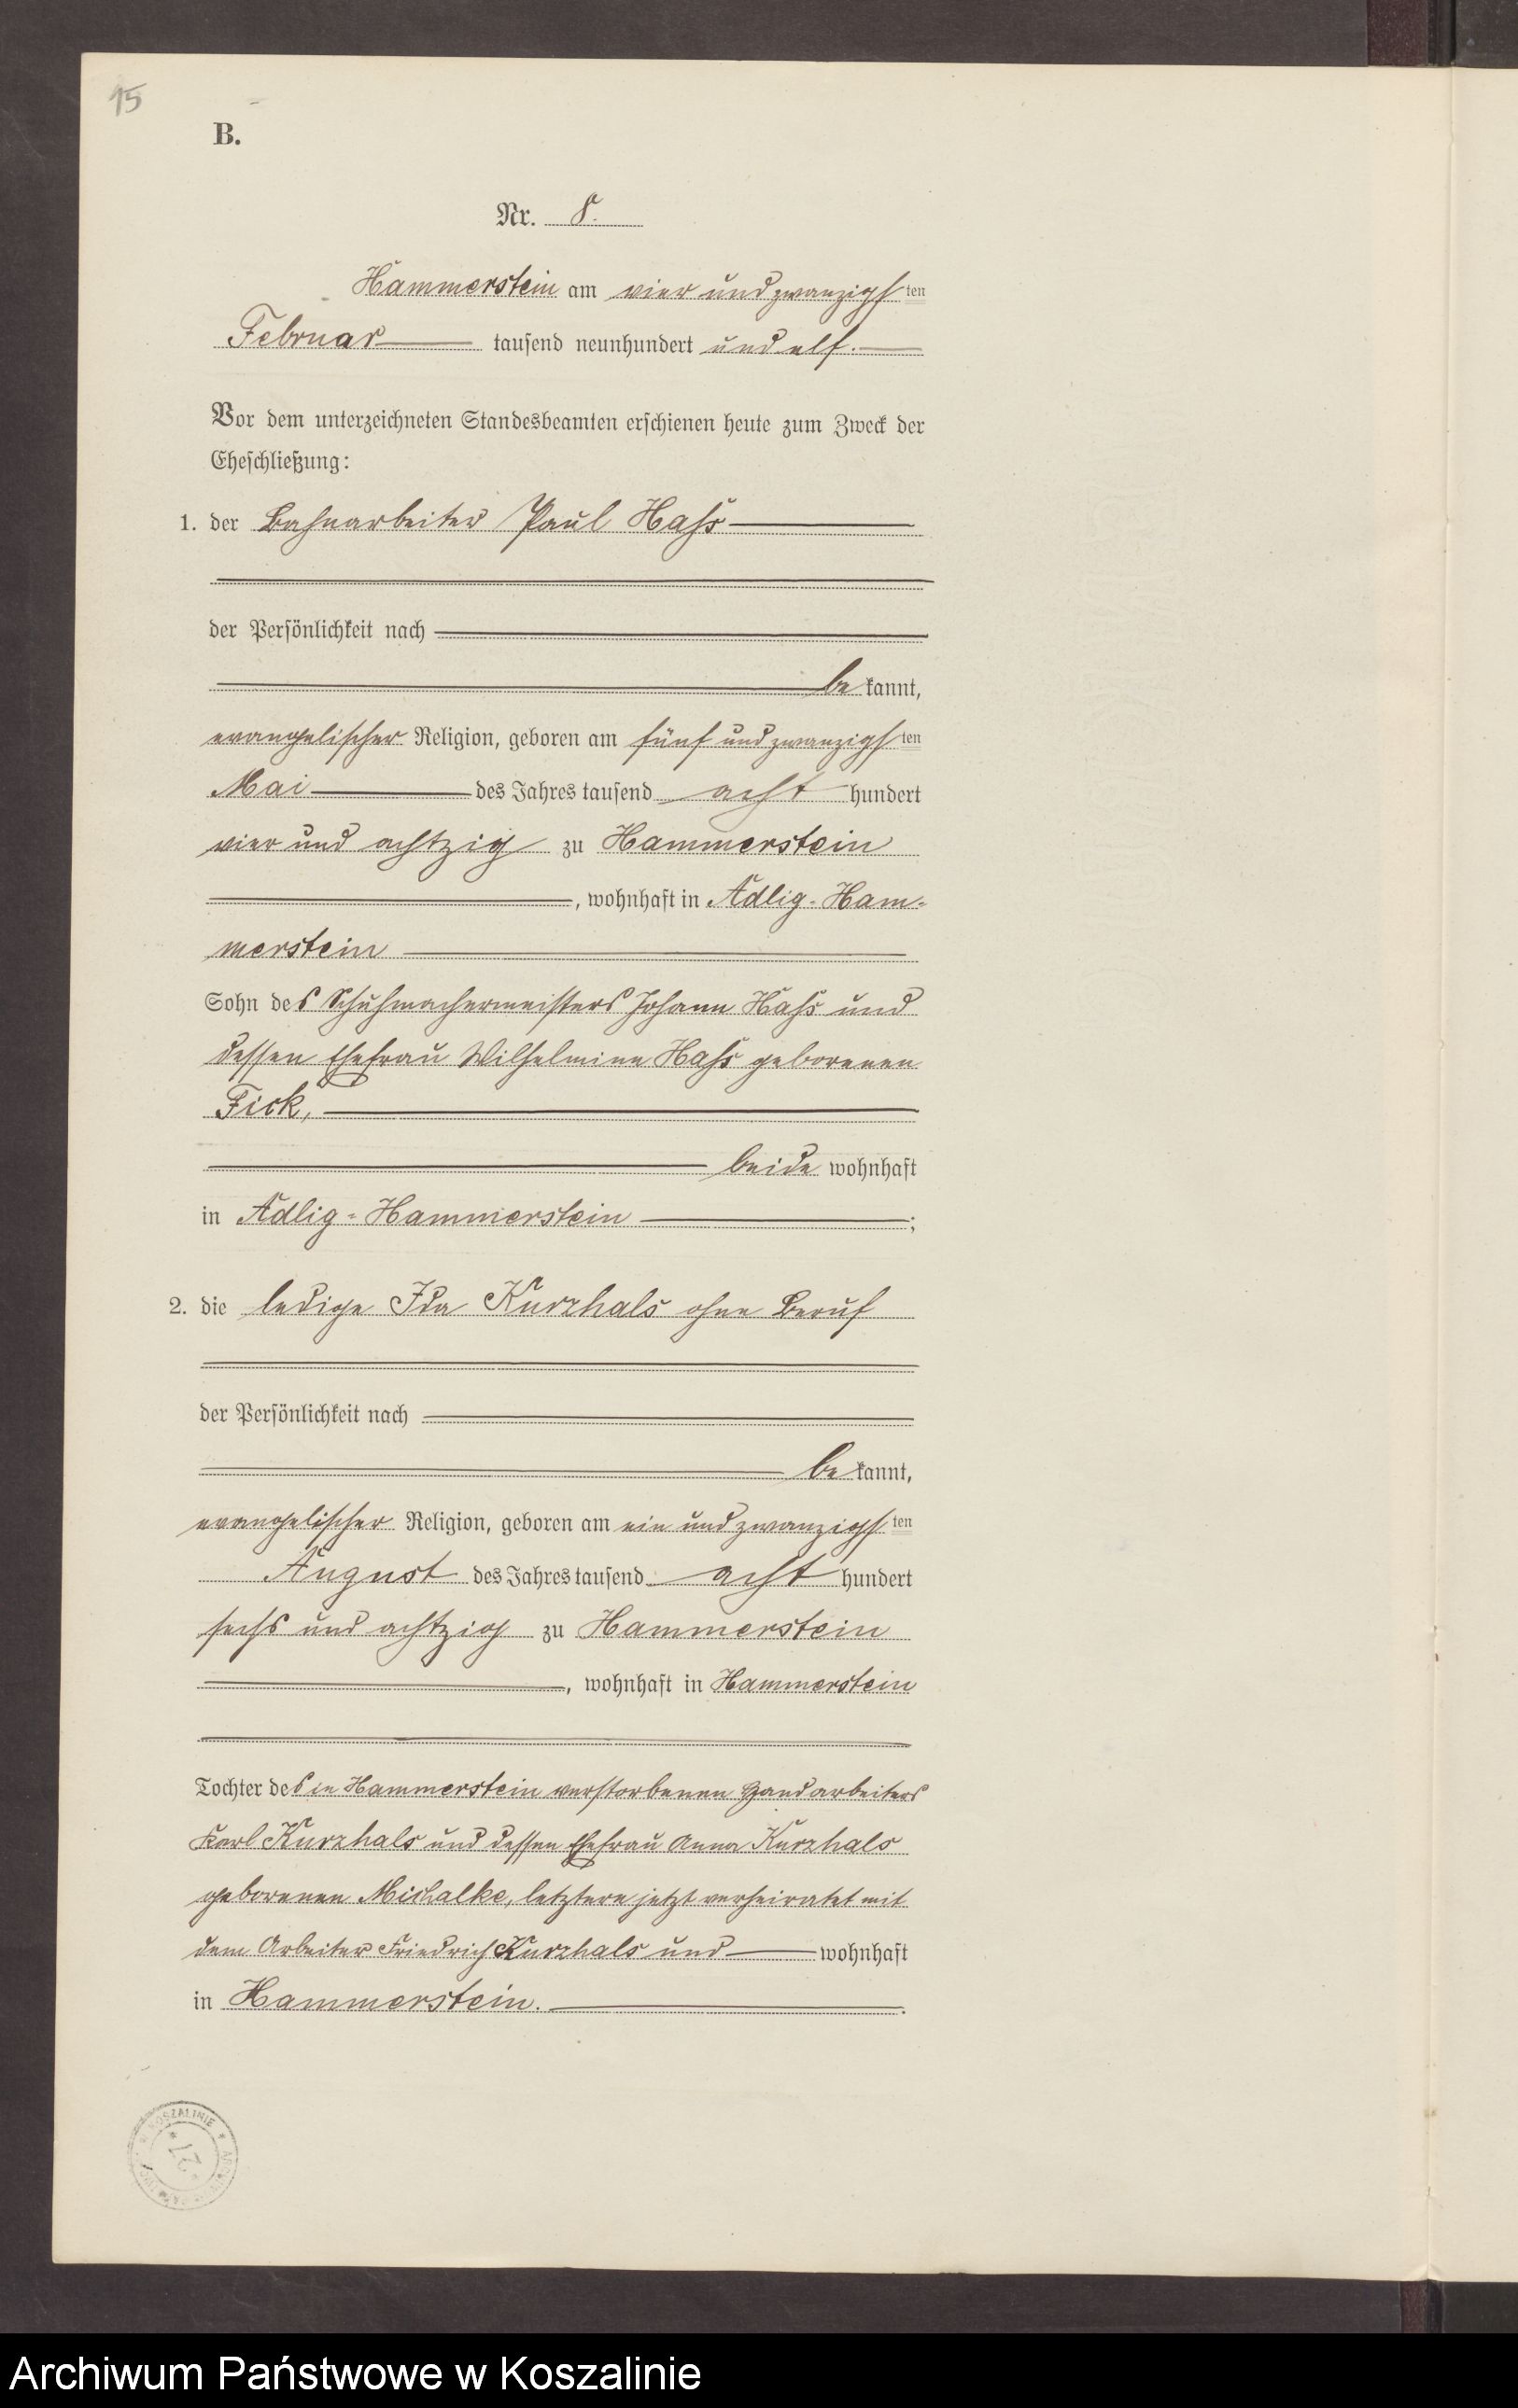 15
B.
Nr. 8.
Hammerstein am vier und zwanzigsten
Februar tausend neunhundert und elf.
Vor dem unterzeichneten Standesbeamten erschienen heute zum Zweck der
Eheschließung:
1. der Bahnarbeiter Paul Hass
der Persönlichkeit nach
bekannt,
evangelischer Religion, geboren am fünf und zwanzigsten
Mai des Jahres tausend acht hundert
vier und achtzig zu Hammerstein
, wohnhaft in Adlig-Ham-
merstein
Sohn des Schuhmachermeisters Johann Hass und
dessen Ehefrau Wilhelmine Hass geborenen
Fick,
beide wohnhaft
in Adlig-Hammerstein;
2. die ledige Ida Kurzhals ohne Beruf
der Persönlichkeit nach
bekannt,
evangelischer Religion, geboren am ein und zwanzigsten
August des Jahres tausend acht hundert
sechs und achtzig zu Hammerstein
, wohnhaft in Hammerstein
Tochter des in Hammerstein verstorbenen Handarbeiters
Karl Kurzhals und dessen Ehefrau Anna Kurzhals
geborenen Michalke, letztere jetzt verheiratet mit
dem Arbeiter Friedrich Kurzhals und wohnhaft
in Hammerstein.
KOSZALINIE
Archiwum Państwowe w Koszalinie